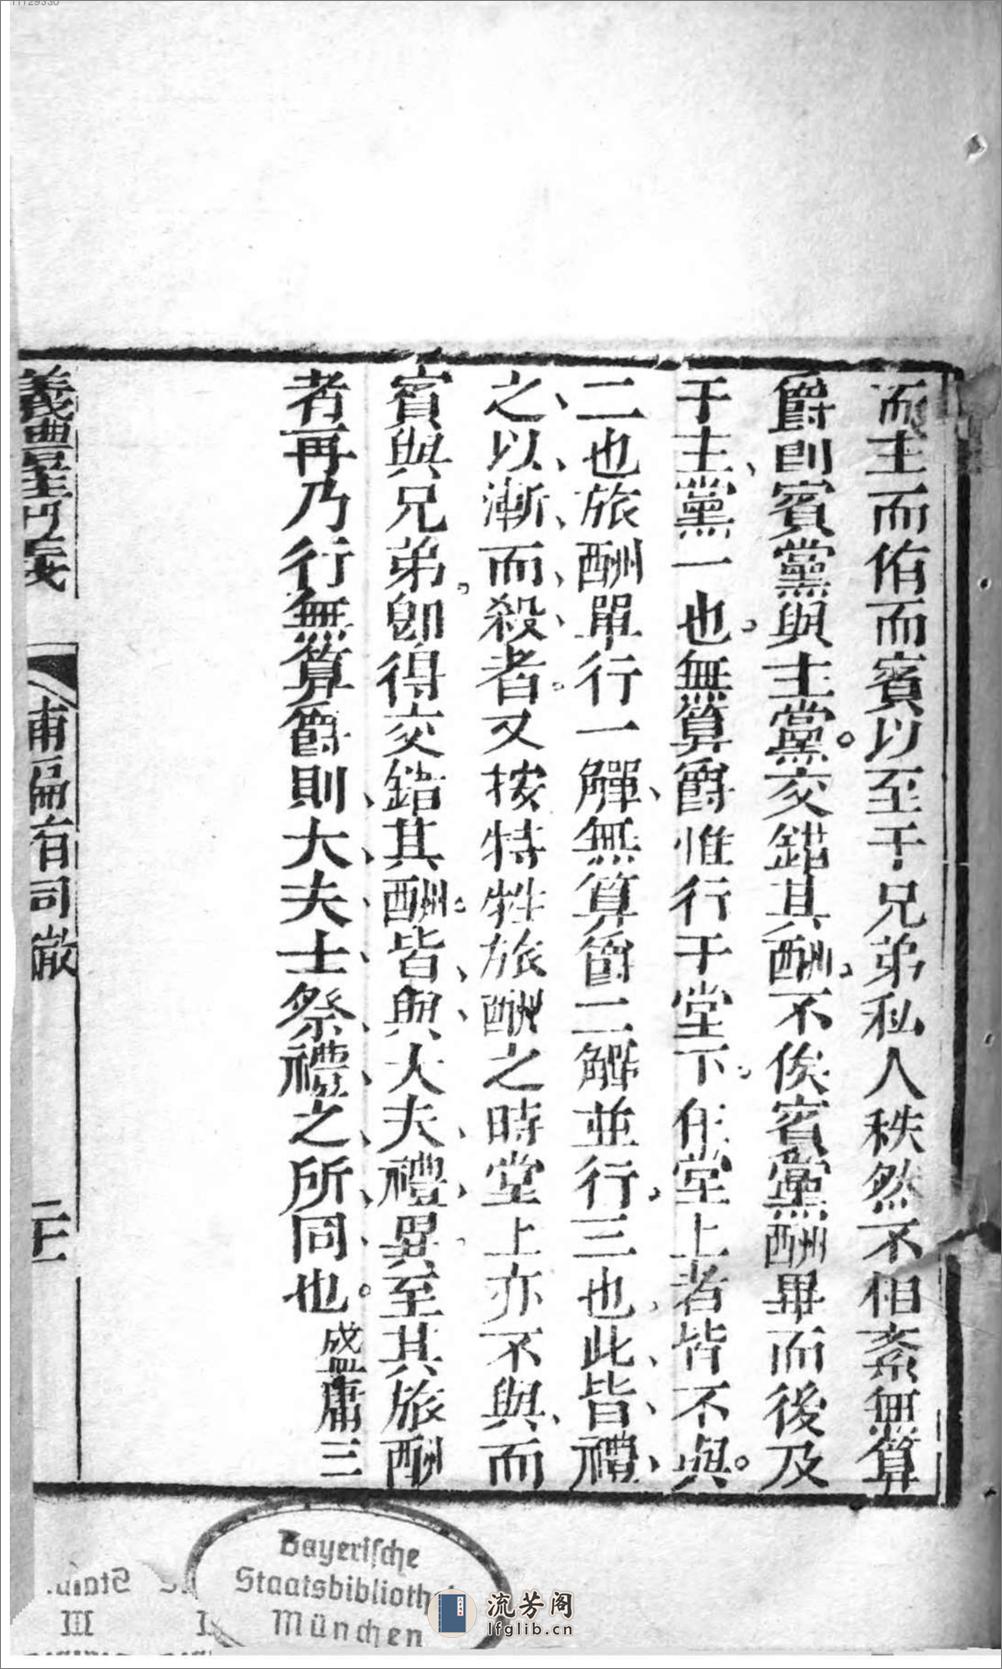 而主而侑而賓以至于兄弟私人秩然不相紊無算
爵則賓黨與主黨交錯其酬不俟賓黨酬畢而後及
于主黨一也無算爵惟行于堂下在堂上者皆不與
二也旅酬單行一觶無算爵二觶並行三也此皆禮
之以漸而殺者又按特牲旅酬之時堂上亦不與而
賓與兄弟卽得交錯其酬皆與大夫禮異至其旅酬
者再乃行無算爵則大夫士祭禮之所同也盛庸三
有司徹
Bayerische
Staatsbibliothek
München
流芳阁
lfglib.cn